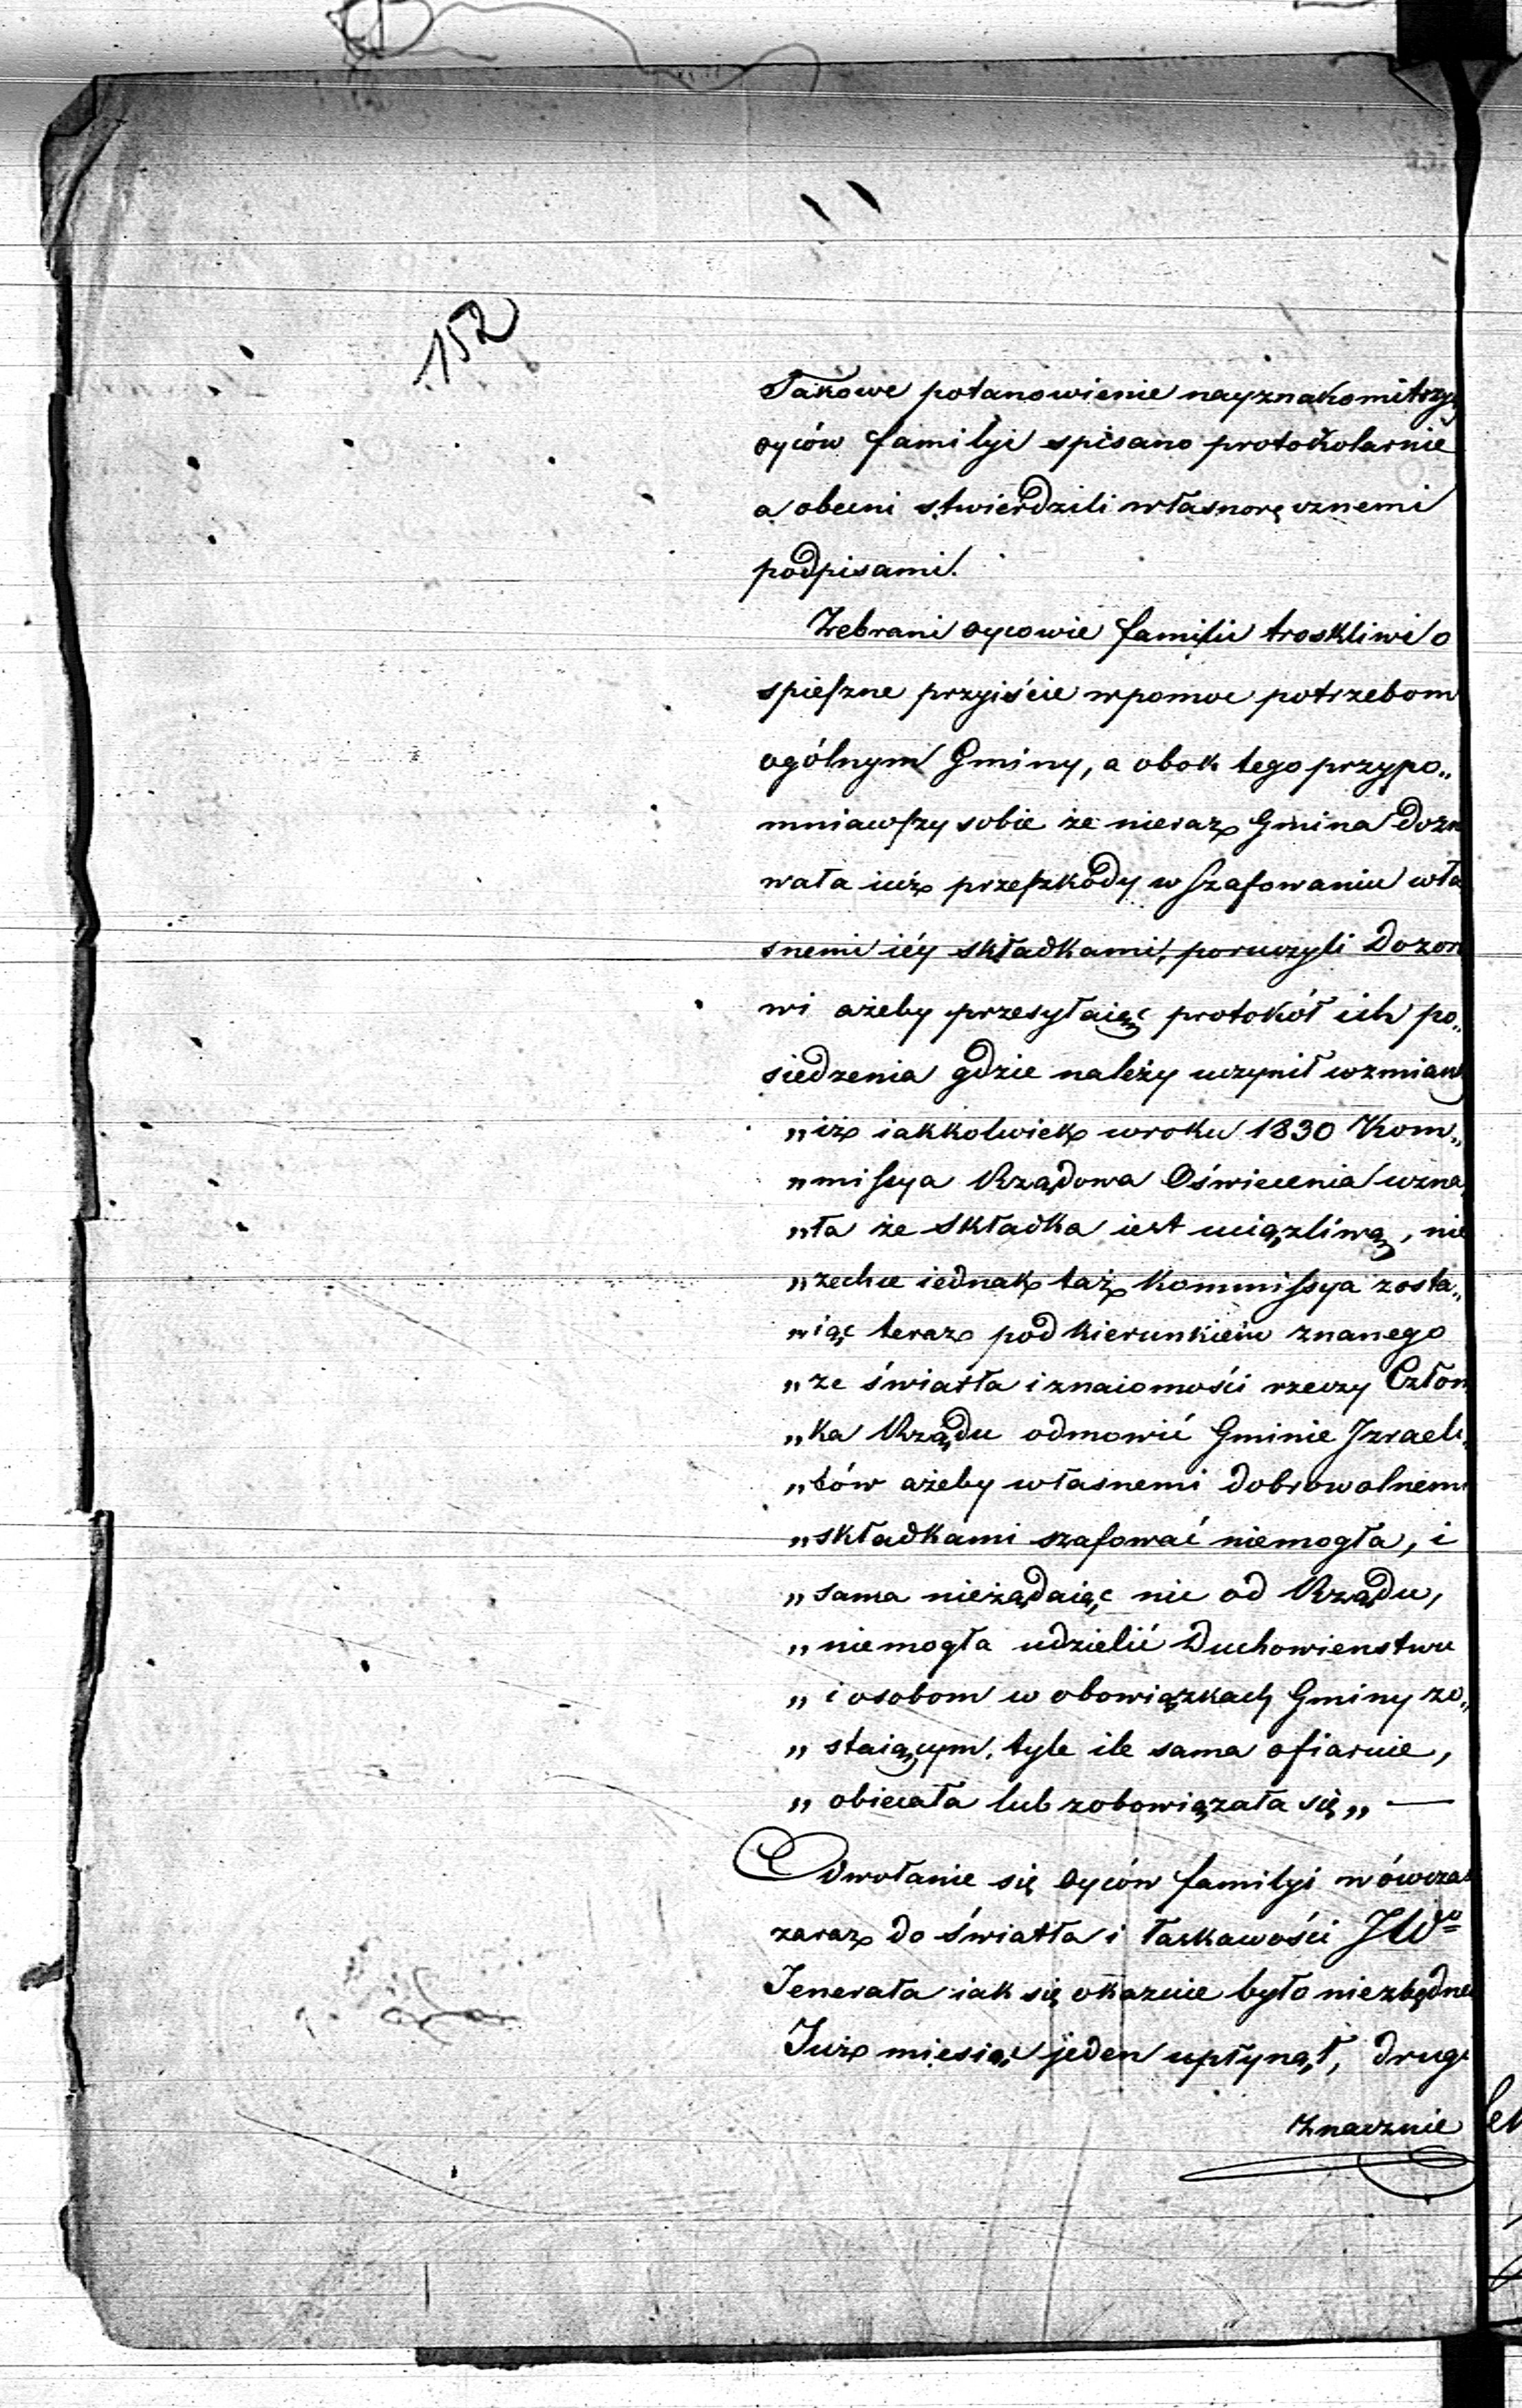 152
Takowe potanowienie nayznakomitszy
oyców familyi spisano protokolarnie
a obecni stwierdzili własnoręcznemi
podpisami.
Zebrani oycowie familii troskliwi o
spieszne przyiście w pomoc potrzebom
ogólnym Gminy, a obok tego przypo„
mniawszy sobie że nieraz Gmina dozn
wała iuż przeszkody w szafowaniu wła
snemi iéy składkami, poruczyli Dozor
wi ażeby przesyłaiąc protokół ich po„
siedzenia gdzie należy uczynił wzmiank
„iż iakkolwiek w roku 1830 Kom„
„missya Rządowa Oświecenia uzna„
„ła że składka iest uciążliwą, nie
„zechce iednak taż Kommissya zosta„
„iąc teraz pod kierunkiem znanego
„ze światła i znaiomości rzeczy Człon
„ka Rządu odmowić Gminie Izraeli„
„tów ażeby własnemi dobrowolnemi
„składkami szafować niemogła, i
„sama nieżądaiąc nic od Rządu,
„niemogła udzielić Duchowienstwu
„i osobom w obowiązkach Gminy zo„
„staiącym, tyle ile sama ofiaruie,
„obiecała lub zobowiązała się„ —
Odwołanie się oyców familyi wówczas
zaraz do światła i łaskawości JWo
Jenerała iak się okazuie było niezbędne
Już miesiąc jeden upłynął, drugi
znacznie